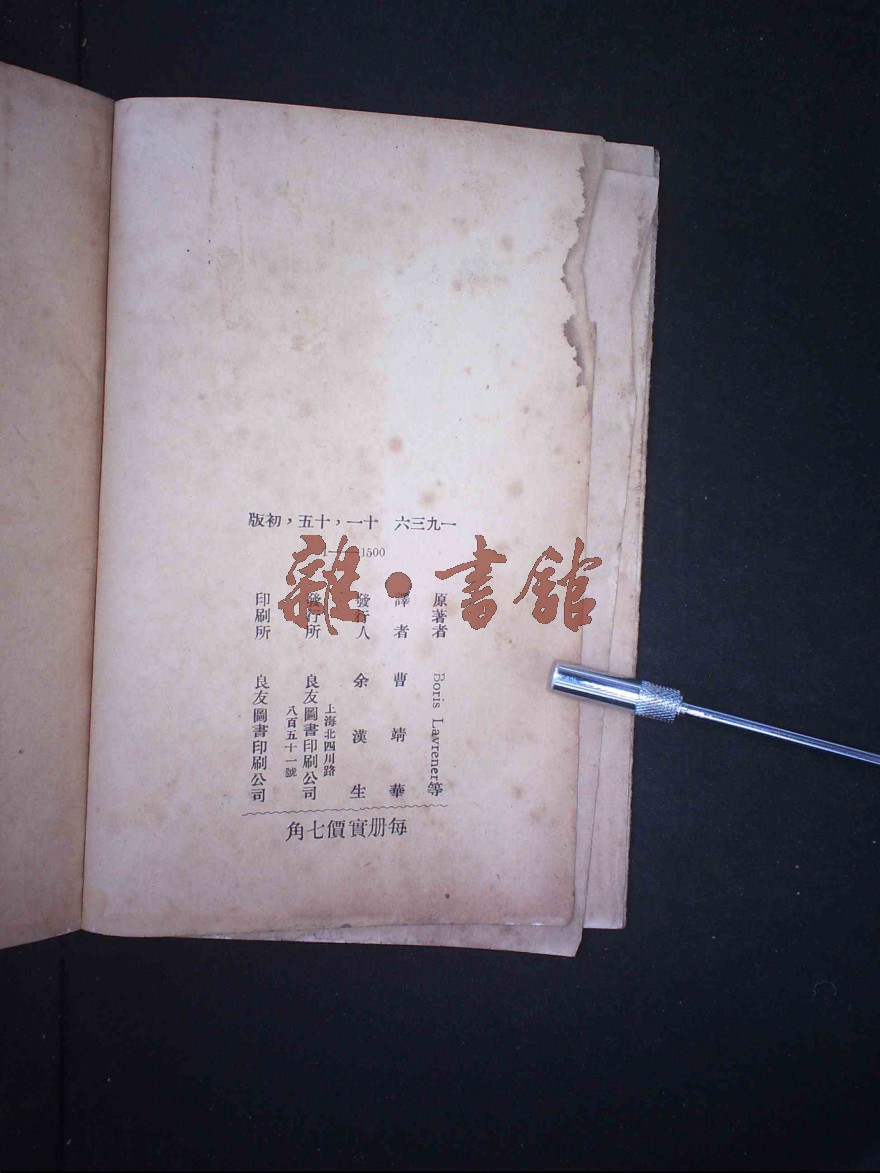 一九三六 十一，十五，初版
1——1500
原著者 Boris Lavrener等
譯者 曹靖華
發行人 余漢生
發行所 良友圖書印刷公司
上海北四川路
八百五十一號
印刷所 良友圖書印刷公司
每册實價七角
雜·書館